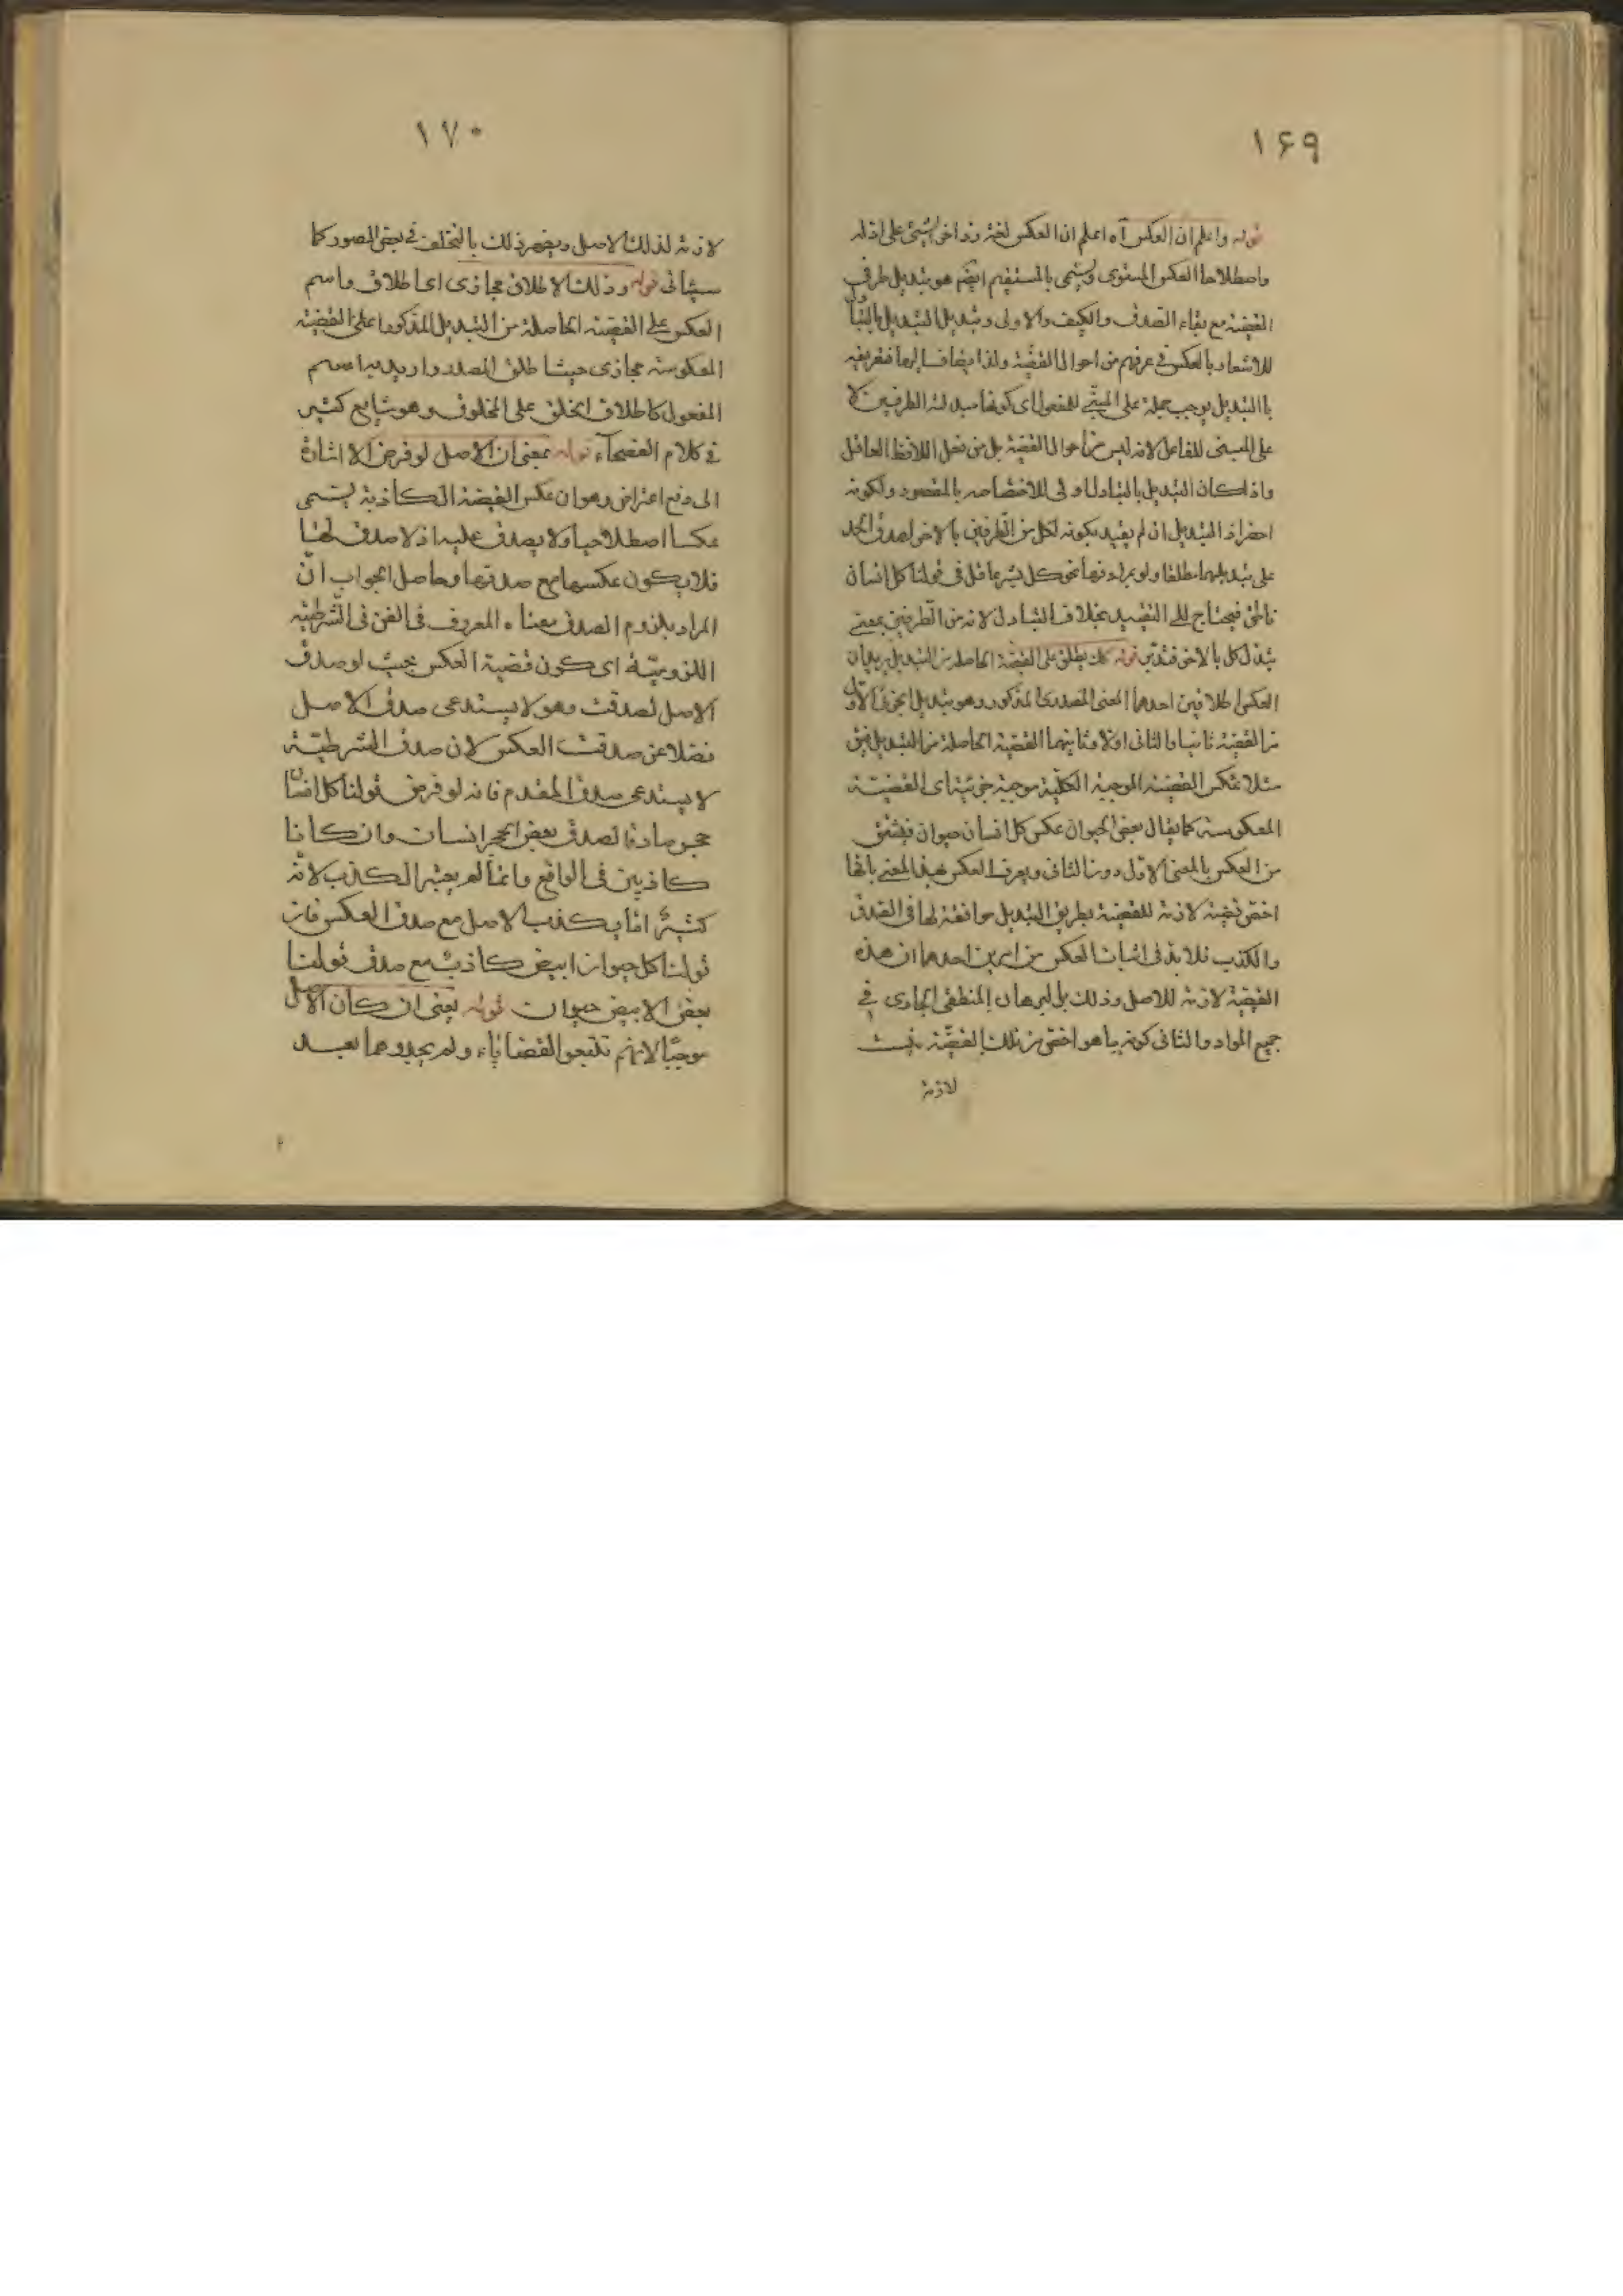 ١۶٩
قوله واعلم ان العكس آه اعلم ان العكس لغة رد اخر الشئ على اوله
واصطلاحا العكس المستوى ويسمى بالمستقيم ايضم هو تبديل طرفى
القضية مع بقاء الصدق والكيف والاولى وتبديل التبديل بالتبادل
للاشعار بالعكس فى عرفهم من احوال القضية ولذا يضاف اليها فتعريفه
بالتبديل يوجب حمله على المبنى للمفعول اى كونها مبدلة الطرفين لا
على المبنى للفاعل لانه ليس من احوال القضية بل من فعل اللافظ العاقل
واذا كان التبديل بالتبادل اولى للاختصاصه بالمقصود ولكونه
احتراز التبديل ان لم يقيد بكونه لكل من الطرفين بالاخر لصدق الحد
على تبديلهما مطلقا ولو بمرادفها نحو كل بشر عاقل فى قولنا كل انسان
ناطق فيحتاج الى التقييد بخلاف التبادل لانه من الطرفين بمعنى
تبدل كل بالاخر فتدبر قوله كك يطلق على القضية الحاصلة من التبديل يريد ان
العكس اطلاقين احدهما المعنى المصدرى المذكور وهو تبديل الجزء الاول
من القضية ثانيا والثانى اولا وثانيهما القضية الحاصلة من التبديل فيق
مثلا عكس القضية الموجبة الكلية موجبة جزئية اى القضية
المعكوسة كما يقال بعض الحيوان عكس كل انسان حيوان فيشتق
من العكس بالمعنى الاول دون الثانى ويعرف العكس بهذا المعنى بانها
اخص قضية لازمة للقضية بطريق التبديل موافقة لها فى الصدق
والكذب فلا بد فى اثبات العكس من امرين احدهما ان هذه
القضية لازمة للاصل وذلك بالبرهان المنطقى الجارى فى
جميع المواد والثانى كونه ما هو اخص من تلك القضية ليست
لازمة
١٧٠
لازمة لذلك الاصل ويظهر ذلك بالتخلف فى بعض الصور كما
سيأتى قوله وذلك الاطلاق مجازى اى اطلاق واسم
العكس على القضية الحاصلة من التبديل المذكور اعلى القضية
المعكوسة مجازى حيث اطلق المصدر واريد به اسم
المفعول كاطلاق الخلق على المخلوق وهو شايع كثير
فى كلام الفصحاء قوله بمعنى ان الاصل لو فرض الا اشارة
الى دفع اعتراض وهو ان عكس القضية الكاذبة يسمى
عكسا اصطلاحيا ولا يصدق عليه اذ لا صدق لها
فلا يكون عكسها مع صدقها وحاصل الجواب ان
المراد بلزوم الصدق معناه المعروف فى الفن فى الشرطية
اللزومية اى كون قضية العكس بحيث لو صدق
الاصل لصدقت وهو لا يستدعى صدق الاصل
فضلا عن صدقت العكس لان صدق الشرطية
لا يستدعى صدق المقدم فانه لو فرض قولنا كل انسان
حجر صادقا لصدق بعض الحجر انسان وان كانا
كاذبين فى الواقع وانما لم يعتبر الكذب لانه
كثيرا ما يكذب الاصل مع صدق العكس فان
قولنا كل حيوان ابيض كاذب مع صدق قولنا
بعض الابيض حيوان قوله يعنى ان كان الاصل
موجبا لانهم تتبعوا القضاياء ولم يجدوهما بعد